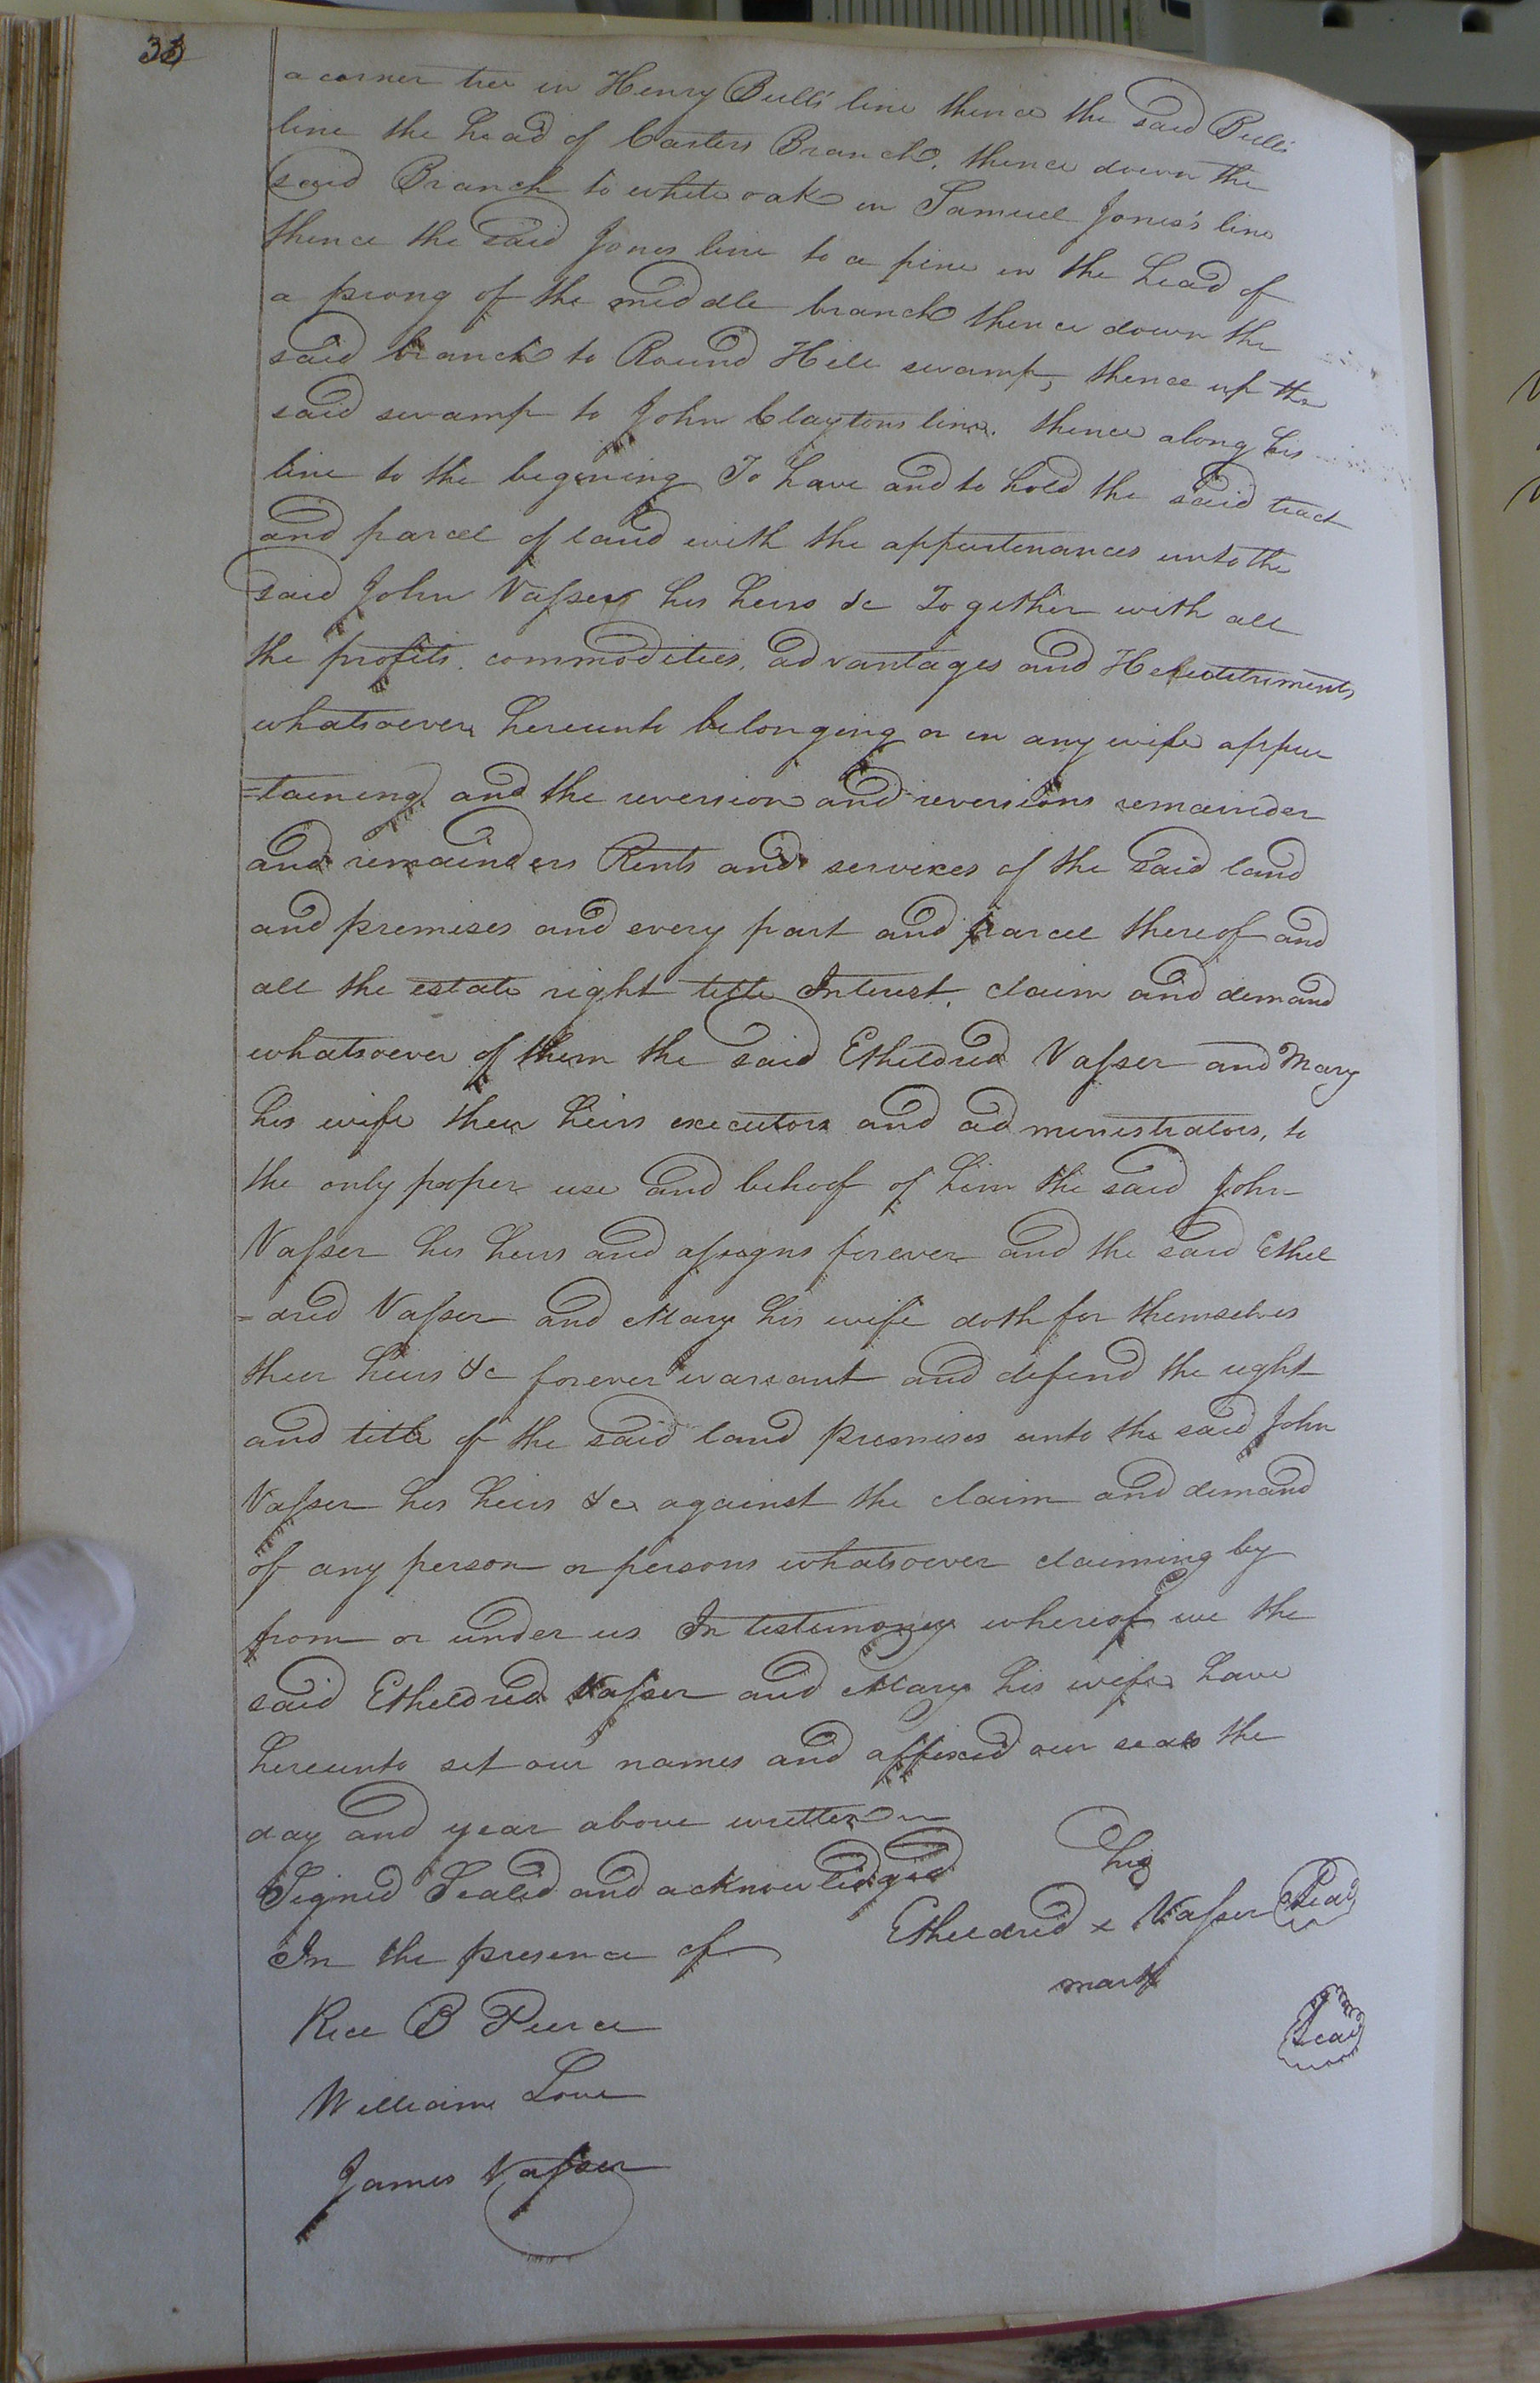 33
a corner tree in Henry Bell's line thence the said Bell's
line the head of Carters Branch. thence down the
said Branch to white oak in Samuel Jones's line
thence the said Jones line to a pine in the head of
a prong of the middle branch thence down the
said branch to Round Hill swamp, thence up the
said swamp to John Claytons line. thence along his
line to the begining To have and to hold the said tract
and parcel of land with the appurtenances unto the
said John Vaſser his heirs &c Together with all
the profits. commodities, advantages and Hereditiments
whatsoever hereunto belonging or in any wiſe appur
=taining and the reversion and reversions remainder
and remainders Rents and services of the said land
and premises and every part and parcel thereof and
all the estate right title Interest, claim and demand
whatsoever of them the said Etheldred Vaſser and Mary
his wife their heirs executors and administrators, to
the only proper use and behoof of him the said John
Vaſser his heirs and aſsigns forever and the said Ethel
=dred Vaſser and Mary his wife doth for themselves
their heirs &c forever warrant and defend the right
and title of the said land premises unto the said John
Vaſser his heirs &c against the claim and demand
of any person or persons whatsoever claiming by
from or under us In testimony whereof we the
said Etheldred Vaſser and Mary his wife have
hereunto set our names and affixed our seals the
day and year above written
Signed Sealed and acknowledged
In the presence of
his
Etheldred x Vaſser Seal
mark
Seal
Rice B Pierce
William Love
James Vaſser